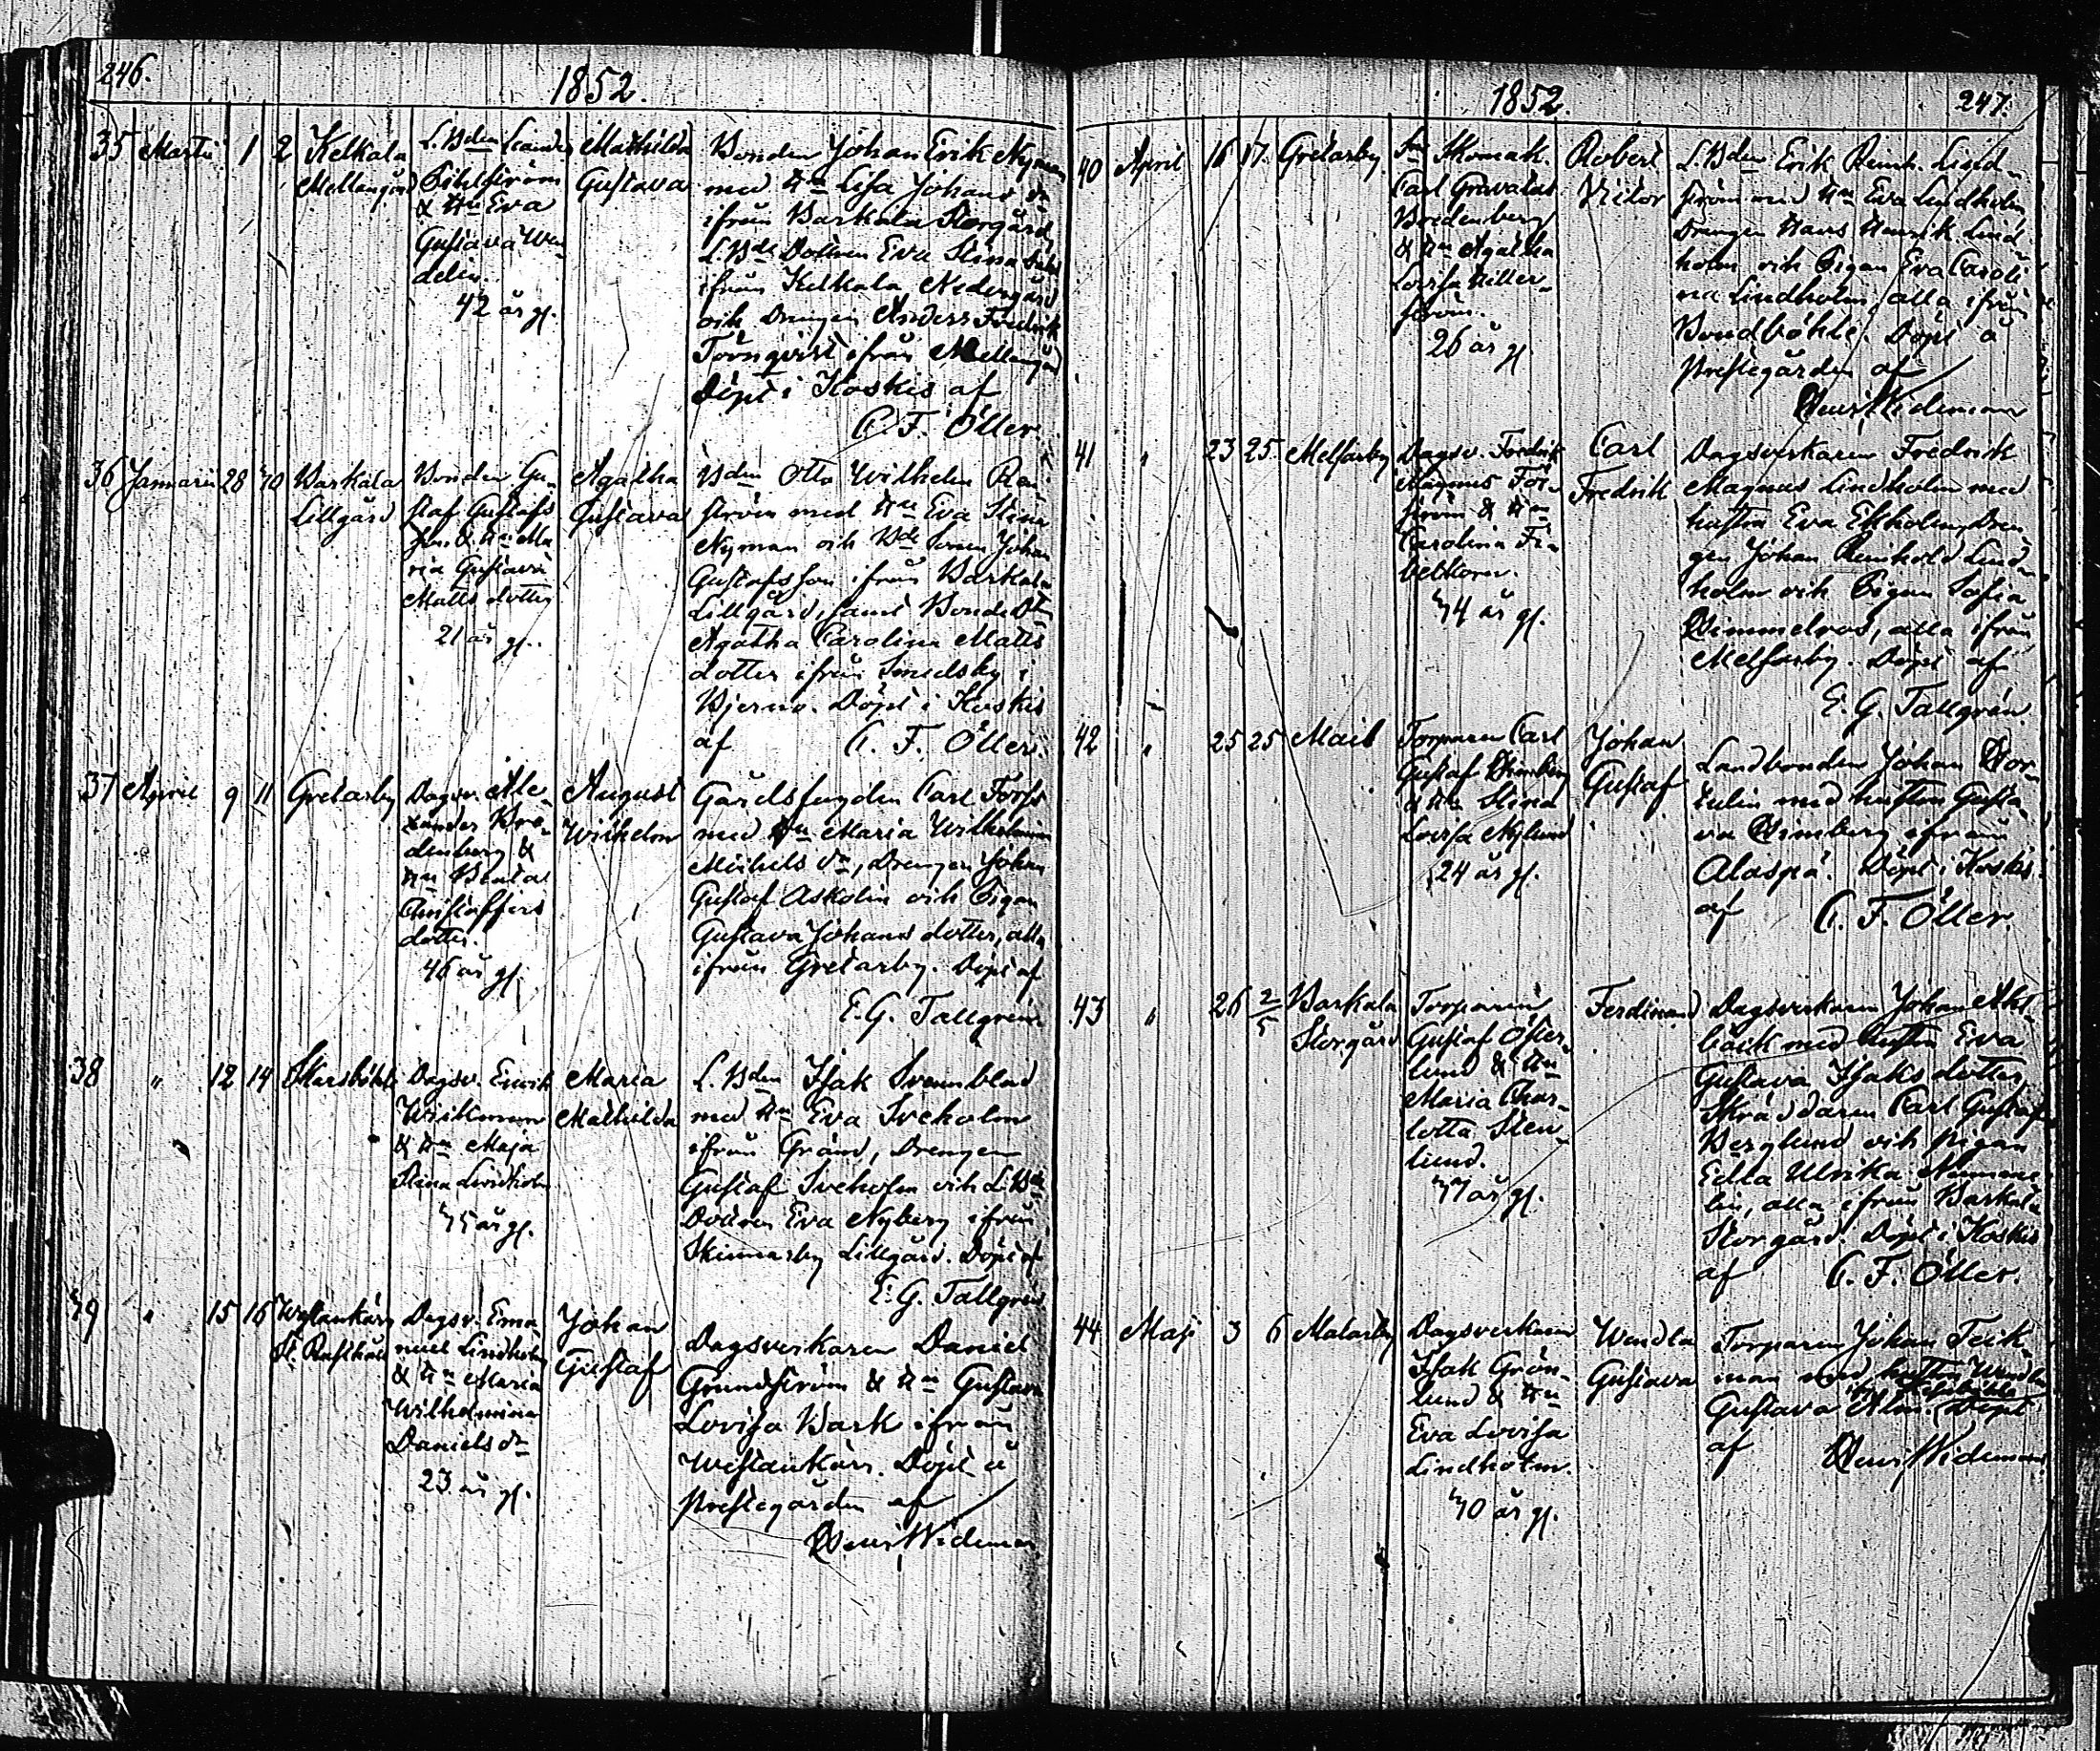 246.
1852.
35 Martii 1 2 Kelkala
Mellangård
L. Bden Leander
& Hu Eva
Gustava Wen
delin.
42 år g.
Mathilda
Gustava
Bonden Johan Erik Nyman
med Hu Lisa Johans dr
ifrån Barkala Storgård,
L. Bde Dottren Eva Stina
ifrån Kelkala Nedergård
och Drengen Anders Fredrik
Törnqvist ifrån Mellangård
Döpt i Koskis af
C. F. Öller.
36 Januarii 28 Barkala
Lillgård
Bonden Gu-
staf Gustafs
son & Hu Ma
ria Gustava
Matts dotter
21 år g.
Agatha
Gustava
Bden Otto Wilhelm
ström med Hu Eva Stina
Nyman och Bde Sonen Johan
Gustafsson ifrån Barkala
Lillgård, samt Bonde
Agatha Carolina Matts
dotter ifrån Smedsby i
Bjerno. Döpt i Koskis
af C. F. Öller.
37 April 9 11 Gretarby
Dagsv. Ale-
xander Bre-
denberg &
Hu Beata
Christoffers
dotter.
46 år g.
August
Wilhelm
Gårdsfougden Carl Forss
med Hu Maria Wilhelmina
Michels dr, Drengen Johan
Gustaf Askolin och Pigan
Gustava Johans dotter, alla
ifrån Gretarby. Döpt af
E. G. Tallgren.
38 " 12 14
Dagsv. Enrik
Wiikman
& Hu Maja
Stina Lindholm
35 år g.
Maria
Mathilda
L. Bden Isak Svanblad
med Hu Eva Sveholm
ifrån Gränd, Drengen
Gustaf Sveholm och L. Bde
Dottren Eva Nyberg ifrån
Skinnarby Lillgård. Döpt af
E. G. Tallgren
39 " 15 16 Westankärr
Dagsv. Ema-
nuel Lindholm
& Hu Maria
Wilhelmina
Daniels dr
23 år g.
Johan
Gustaf
Dagsverkaren Daniel
Grundström & Hu Gustava
Lovisa Bark ifrån
Westankärr. Döpt å
Prestegården af
Wideman
1852.
247.
40 April 16 17. Gretarby
Skomak.
Carl Gustaf
Bredenberg
& Hu Agatha
Lovisa Hiller-
ström.
26 år g.
Robert
Victor
L. Bden Erik Reinh. Lind-
ström med Hu Eva Lindholm,
Drengen Hans Henrik Lind-
holm och Pigan Eva Caroli
na Lindholm, alla ifrån
Bondböhle. Döpt å
Prestegården af
Wideman
41 " 23 25. Melfarby
Dagsv. Fredrik
Magnus For-
ström & Hu
Carolina Fi-
34 år g.
Carl
Fredrik
Dagsverkaren Fredrik
Magnus Lindholm med
hustru Eva Ekholm, Dren
gen Johan Reinhold Lind-
holm och Pigan Sofia
Himmelroos, alla ifrån
Melfarby. Döpt af
E. G. Tallgrén.
42 " 25 25 Mail
Torparen Carl
Gustaf Wimberg
& Hu Stina
Lovisa Nylund
24 år g.
Johan
Gustaf
Landbonden Johan Hor-
tulin med hustru Gusta
va Wimberg ifrån
Alaspä. Döpt i Koskis
af C. F. Öller.
43 " 26 2/5 Barkala
Storgård
Torparen
Gustaf Öster-
lund & Hu
Maria Char-
lotta Sten-
lund.
37 år g.
Ferdinand
Dagsverkaren Johan Ahl-
bäck med hustru Eva
Gustava Isaks dotter,
Skräddaren Carl Gustaf
Berglund och Pigan
Edla Ulrika
lin, alla ifrån Barkala
Storgård. Döpt i Koskis
af C. F. Öller.
44 Maji 3 6 Malarby
Dagsverkaren
Isak Grön-
lund & Hu
Eva Lovisa
Lindholm.
30 år g.
Wendla
Gustava
Torparen Johan Teik-
man med hustru Wendla
Gustava Alm. Döpt
af Wideman